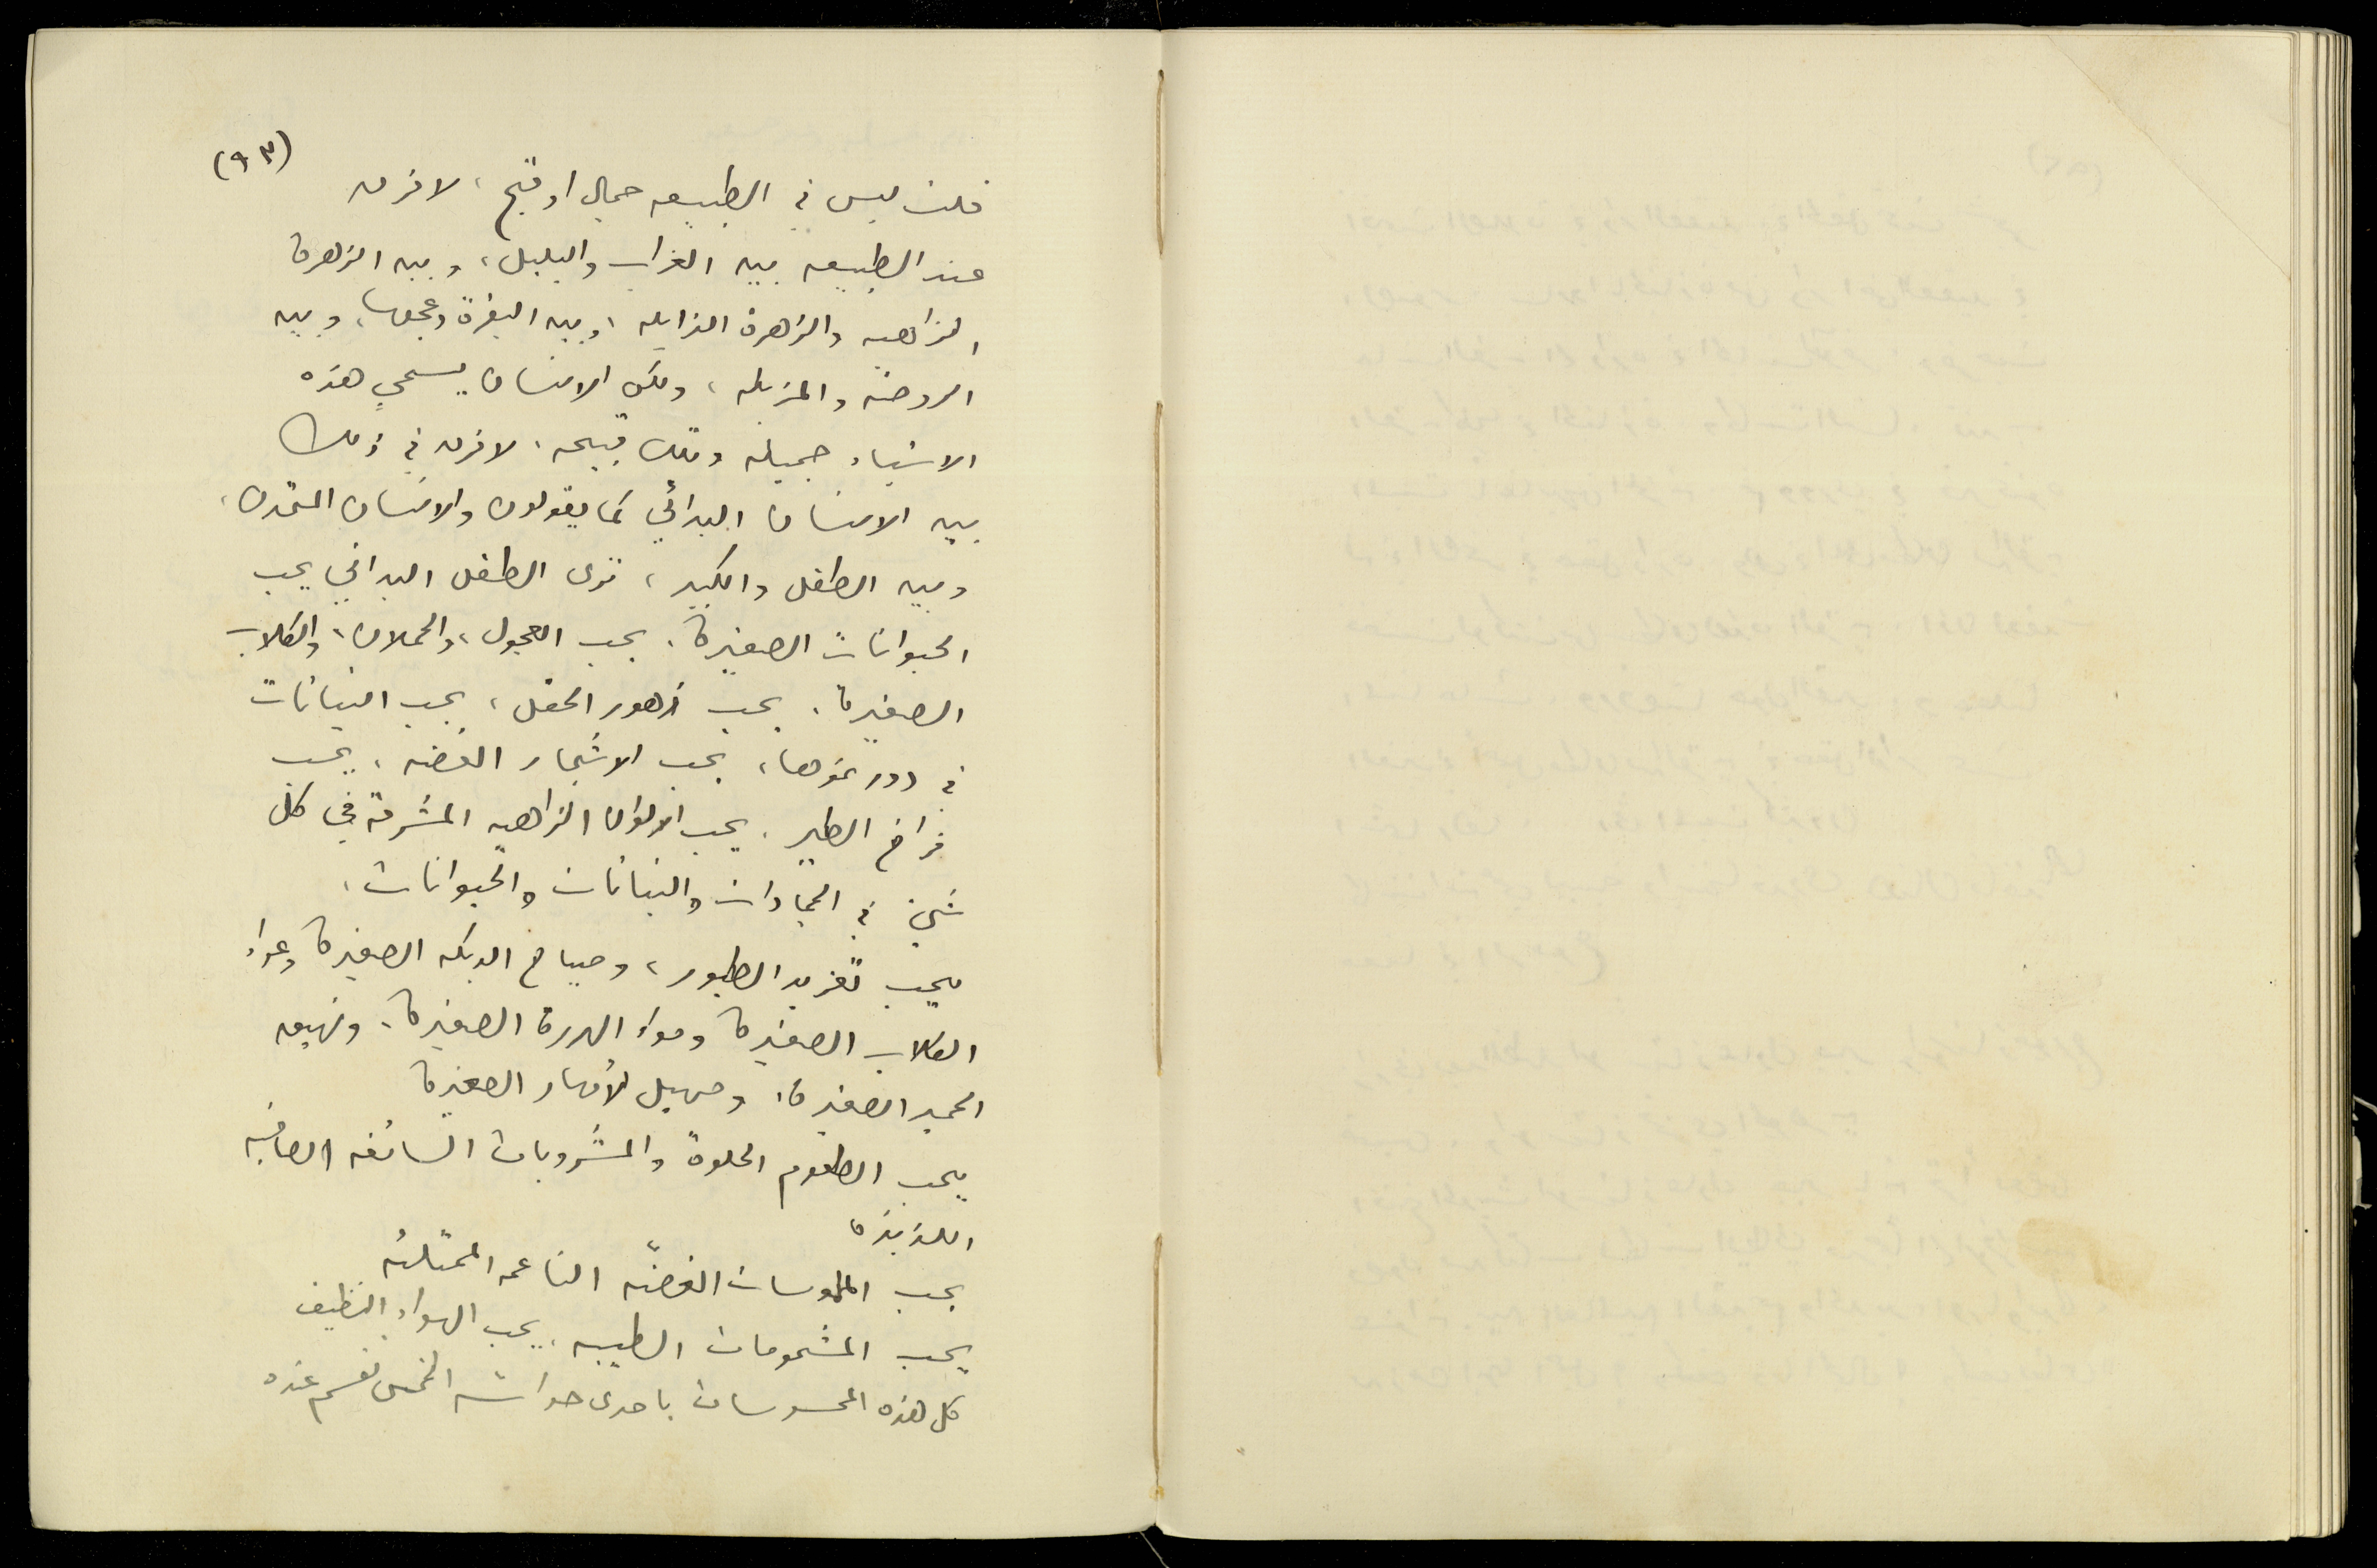 (٩٣)
قلت ليس في الطبيعه جمال او قبح، لا فرق
عند الطبيعه بين الغراب والبلبل، وبين الزهرة
الزاهيه والزهرة الذابله، وبين البقرة وعجلها، وبين
الروضه والمزبله، ولكن الانسان يسمي هذه
الاشياء جميله وتلك قبيحه. لا فرق في ذلك
بين الانسان البدائي كما يقولون والانسان المتمدن،
وبين الطفل والكبير، ترى الطفل البدائي يحب
الحيوانات الصغيرة. يحب العجول، والحملان، والكلاب
الصغيرة. يحب زهور الحقل، يحب النباتات
في دور نموها، يحب الاشجار الغضه، يحب
فراخ الطير. يحب الالوان الزاهيه المشرقة في كل
شيء في الجمادات والنباتات والحيوانات.
يحب تغريد الطيور، وصياح الديكه الصغيرة وعواء
الكلاب الصغيرة ومواء الهررة الصغيرة. ونهيق
الحمير الصغيرة، وصهيل الأمهار الصغيرة
يحب الطعوم الحلوة والمشروبات السائغه الصافيه
اللذيذة
يحب الملموسات الغضّه الناعمه الممتلئه
يحب المشمومات الطيبه. يحب الهواء النظيف
كل هذه المحسوسات باحدى حواسه الخمس عنده